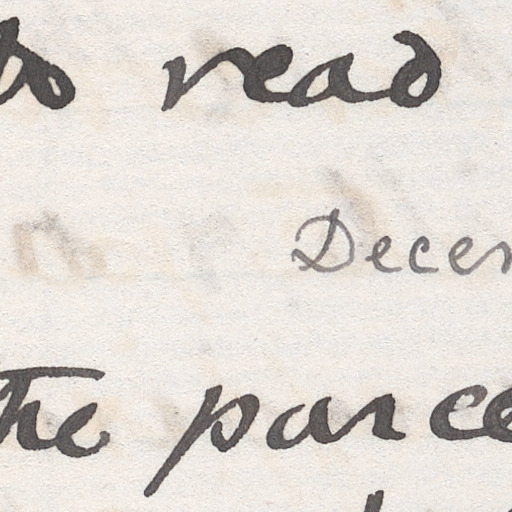 to read
Decem
the parce